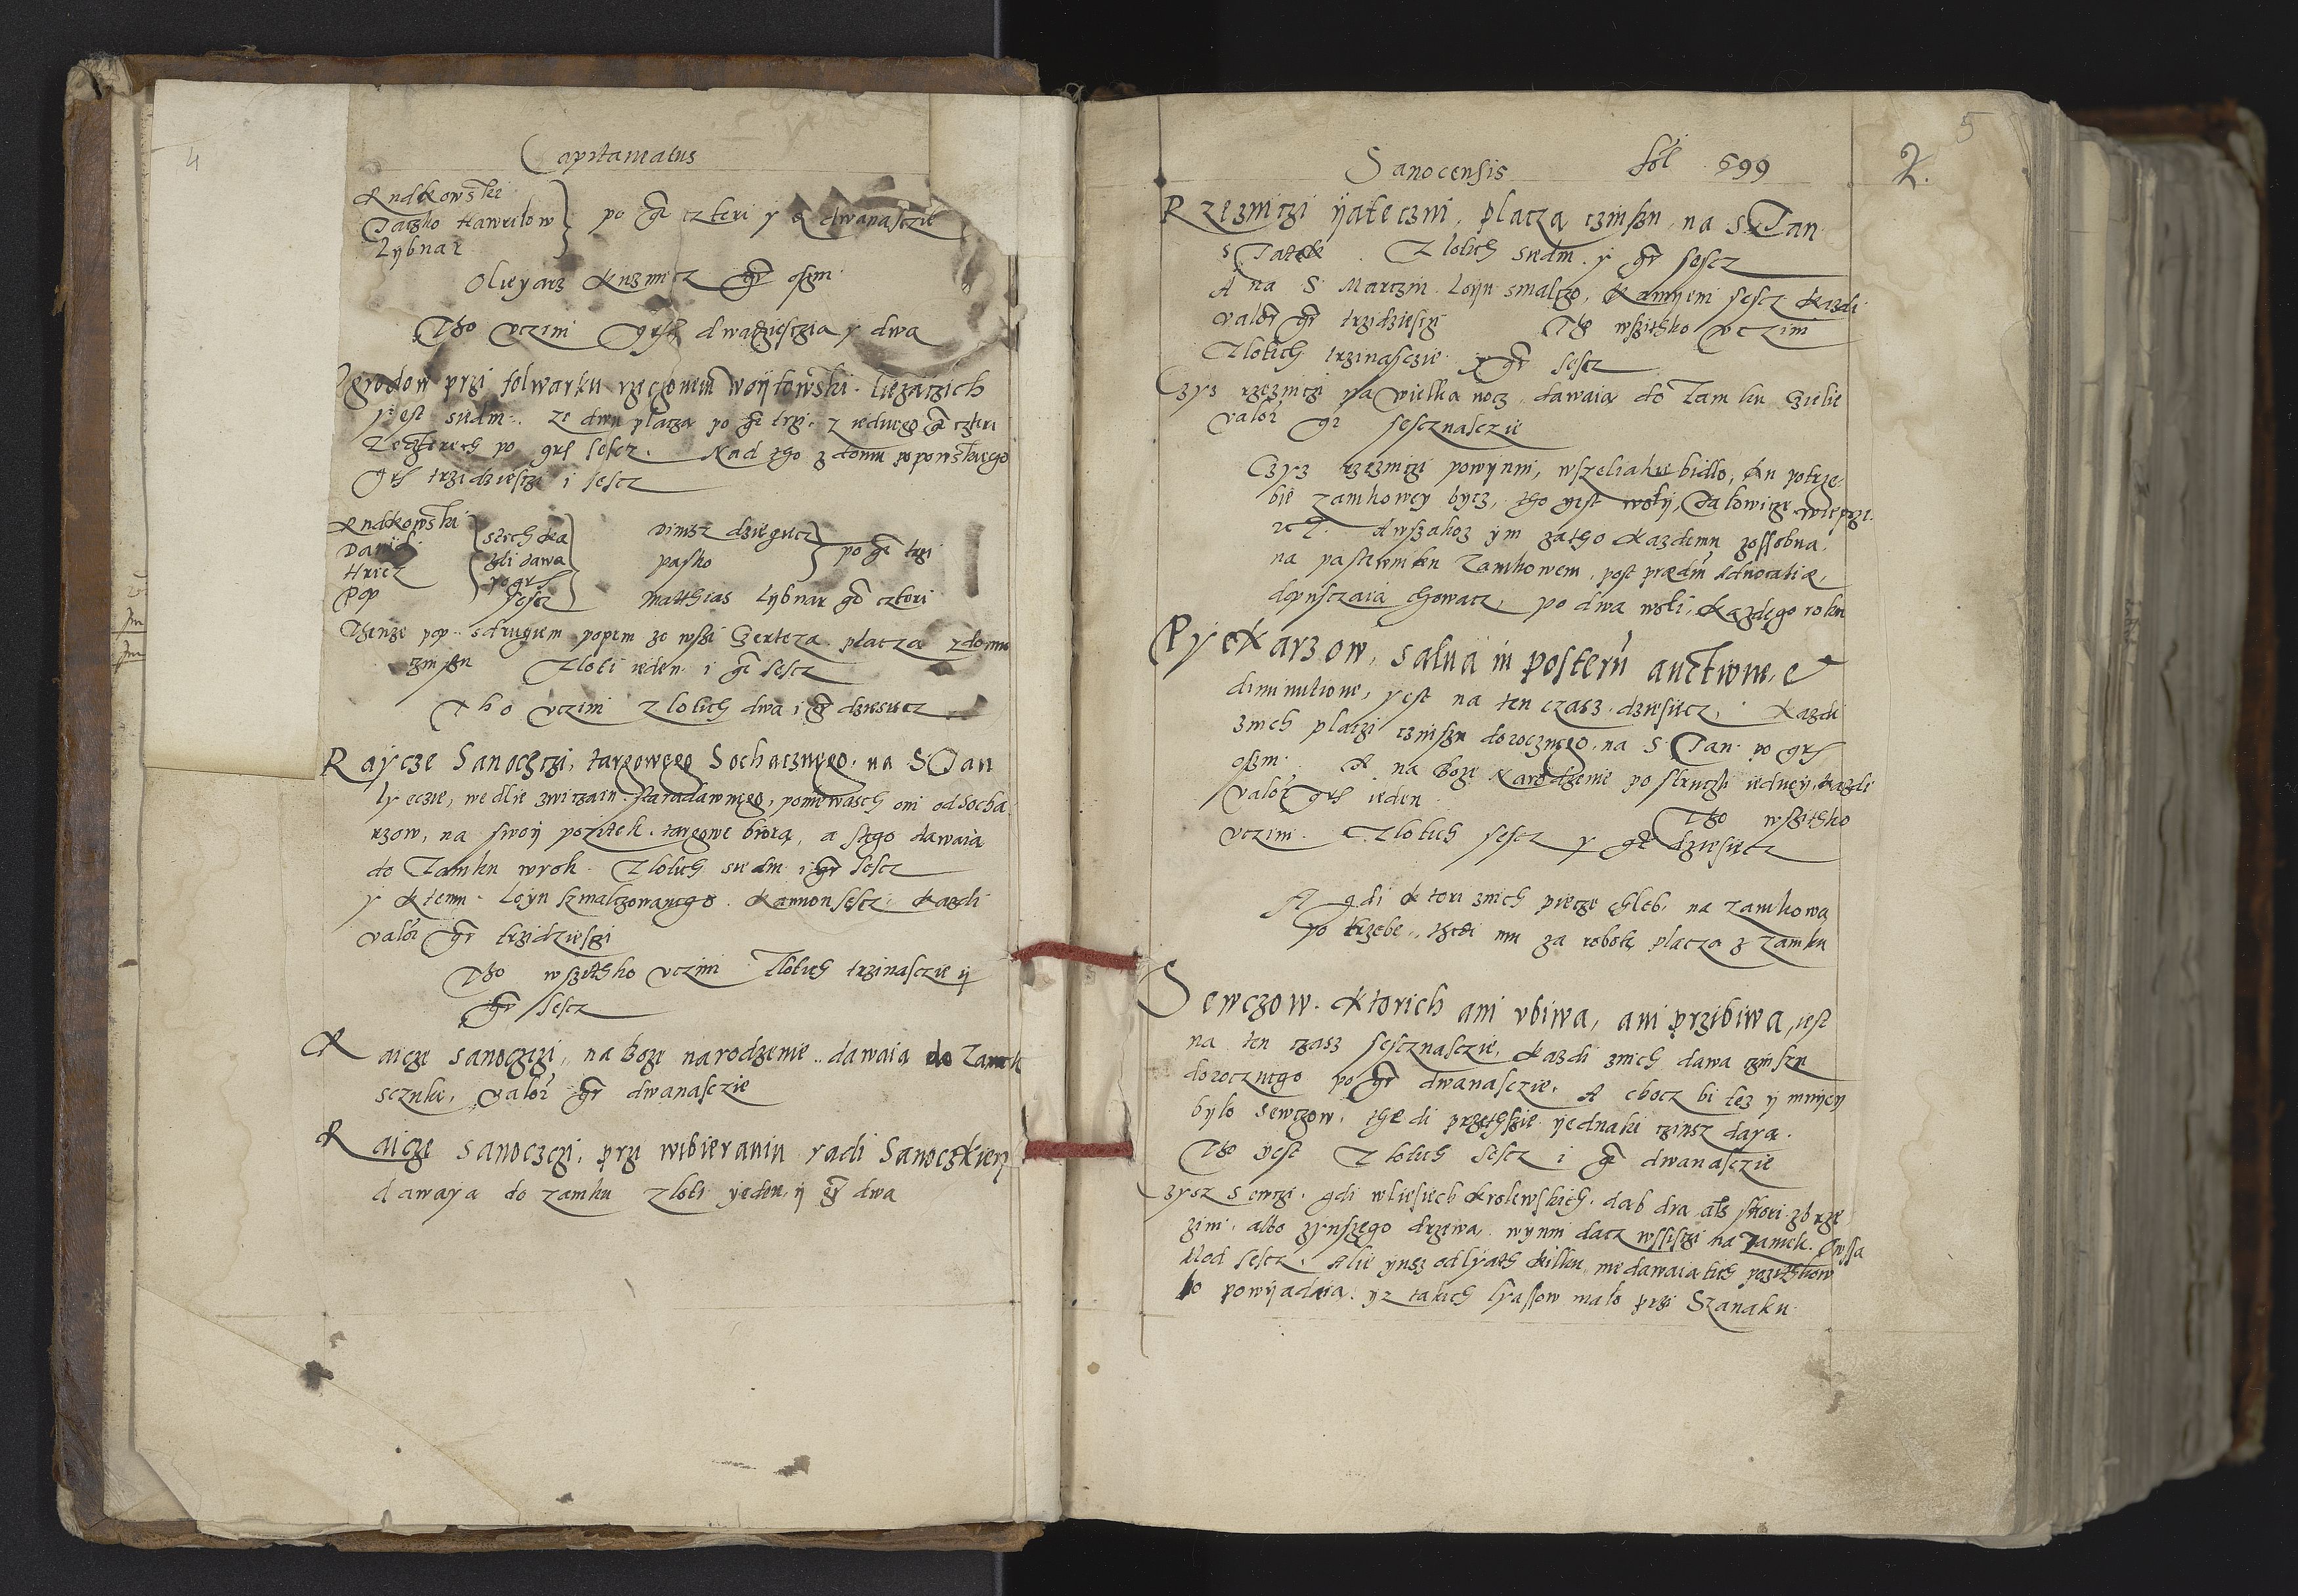 4
Capitaneatus
Rudkowski
Jaczko Hawrilow
Lybnar
po gr czteri y dwanasczie
Olieyarz Kuzmicz gr oszm
Tho vczini grss dwadziesczia y dwa
Ogrodow przi folwarku rzeczonem woytowski liezaczich
yest siedm. ze dwu placza po gr trzi. z iednego gr czteri
Zeczterech po grs sescz. Nad tho z domu popowskiego
Grs trzidziesczi i sescz
Rudkowski
Hricz
Pop
szesch ka
zdi dawa
po grs
sescz
Dimsz dziegucz
pasko
po gr trzi
Matthias Lybnar gr czteri
Thenze pop. sdrugiem popem ze wszi Czerteza placza zdomu
Zloti ieden i gr sescz
Tho vczini zlotich dwa i gr dziesiecz
Raycze Sanoczczi, targowego Sochacznego. na S Jan
lyeczie, wedlie zwiczain staradawnego, poniewasch oni od Socha
rzow, na swoy pozitek targowe biora, a stego dawaia
do Zamku wrok. Zlotich siedm i gr sescz
y ktemu. Loyu szmalczowanego. Kamion sescz. kazdi
valor gr trzidziesczi
Tho wszithko vczini Zlotich trzinasczie y
gr sescz
Raicze sanoczczi, na Boze narodzenie.. dawaia do Zamk
sczuke, valor gr dwanasczie
Raicze sanoczczi, przi wibieraniu radi Sanoczkiey
dawaya do zamku zloti yeden, y gr dwa
5
Sanocensis fol 599
2.
Rzezniczi yateczni, placza czinszu na S Jan
s Jatek. Zlotich siedm. y gr sescz
A na S. Marczin Loyu smalczo, kamyeni sescz kazdi
valor gr trzidziesczi Tho wszithko vczini
Zlotich trzinasczie y gr sescz
Czyz rzezniczi na wielka nocz dawaia do Zamku Czielie
valor gr sescznasczie
Czyz rzezniczi powynni, wszeliakie bidlo, ku potrze-
bie zamkowey bycz, tho yest woly, Jalowicze wieprze
Awszakoz ym zatho kazdemu zossobna,
na pastewniku Zamkowem, post praedium Advocatiae,
dopusczaia chowacz, po dwa woli, kazdego roku
Pyekarzow, salua in posterum auctione, et
diminutione, yest na ten czasz dziesiecz, kazdi
znich placzi czinszu dorocznego, na S Jan po grs
oszm. A na Boze Narodzenie po struczli iedney, kazdi
valor grs ieden.
Tho wszithko
vczini. Zlotich sescz y gr dziesiecz
A gdi ktori znich piecze chleb, na zamkowa
potrzebe, thedi mu za robote placza z zamku
Sewczow. ktorich ani vbiwa, ani przibiwa, iest
na ten czasz sescznasczie, kazdi znich dawa czinszu
dorocznego po gr dwanasczie. A chocz bi tez y mnyey
bylo sewczow, thedi przethszie yednaki czinsz daya.
Tho yest Zlotich sescz i gr dwanasczie
Czysz sewczi, gdi wliesiech krolewskich, dab dra albo skori zbrze
zini, albo zynszego drzewa, wynni dacz wssisczi na Zamek. Owssa
klod sescz. Alie ynsz odlyath kilku, nie dawaia tich pozithkow
bo powyadaia, yz takich lyassow malo przi Szanaku.